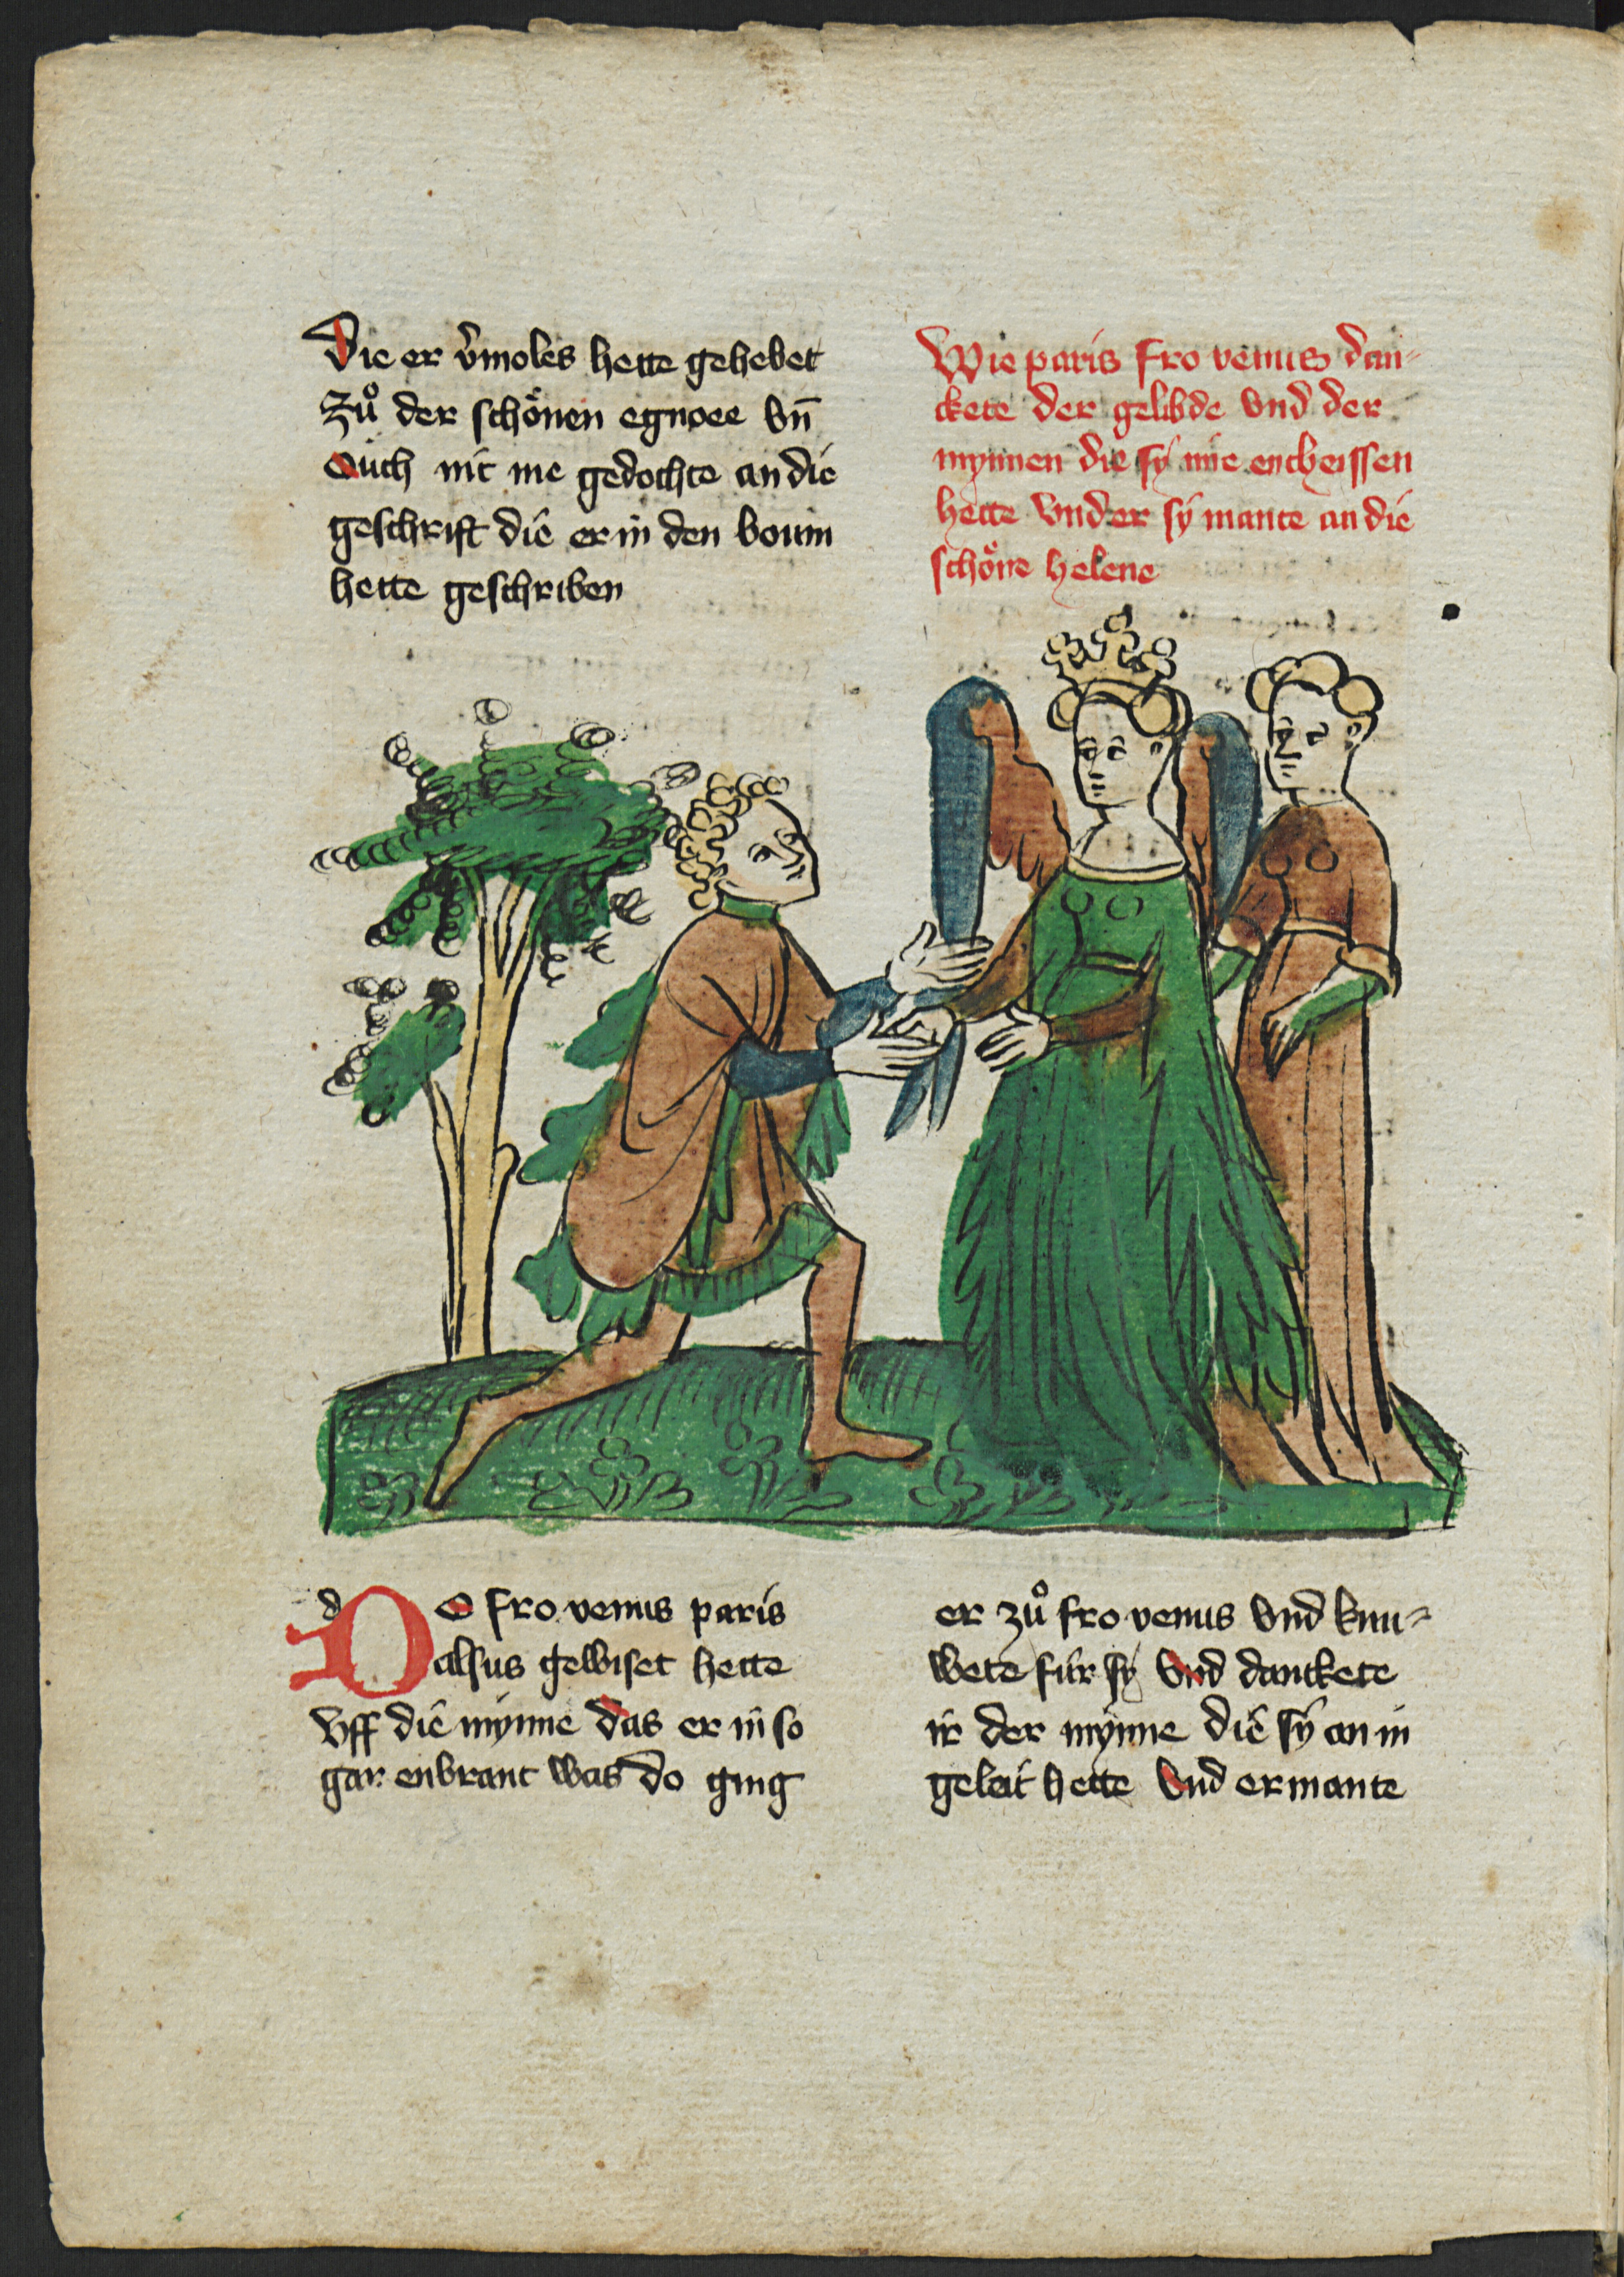 Die er v̄moles hette gehebet
Zuͦ der schoͤnen egnoee vn̄
Ouch nit me gedochte an die
geschrift die er in den boum
hette geschriben
Wie paris fro venus dan⸗
ckete der gelibde vnd der
mynnen die sy ime entheissen
hette vnd er sy mante an die
schoͤne helene
d
DO fro venus paris
alsus gewiset hette
vff die mynne das er in so
gar enbrant was do ging
er zuͦ fro venus vnd knu⸗
wete für sy vnd danckete
ir der mynne die sy an in
geleit hette vnd ermante